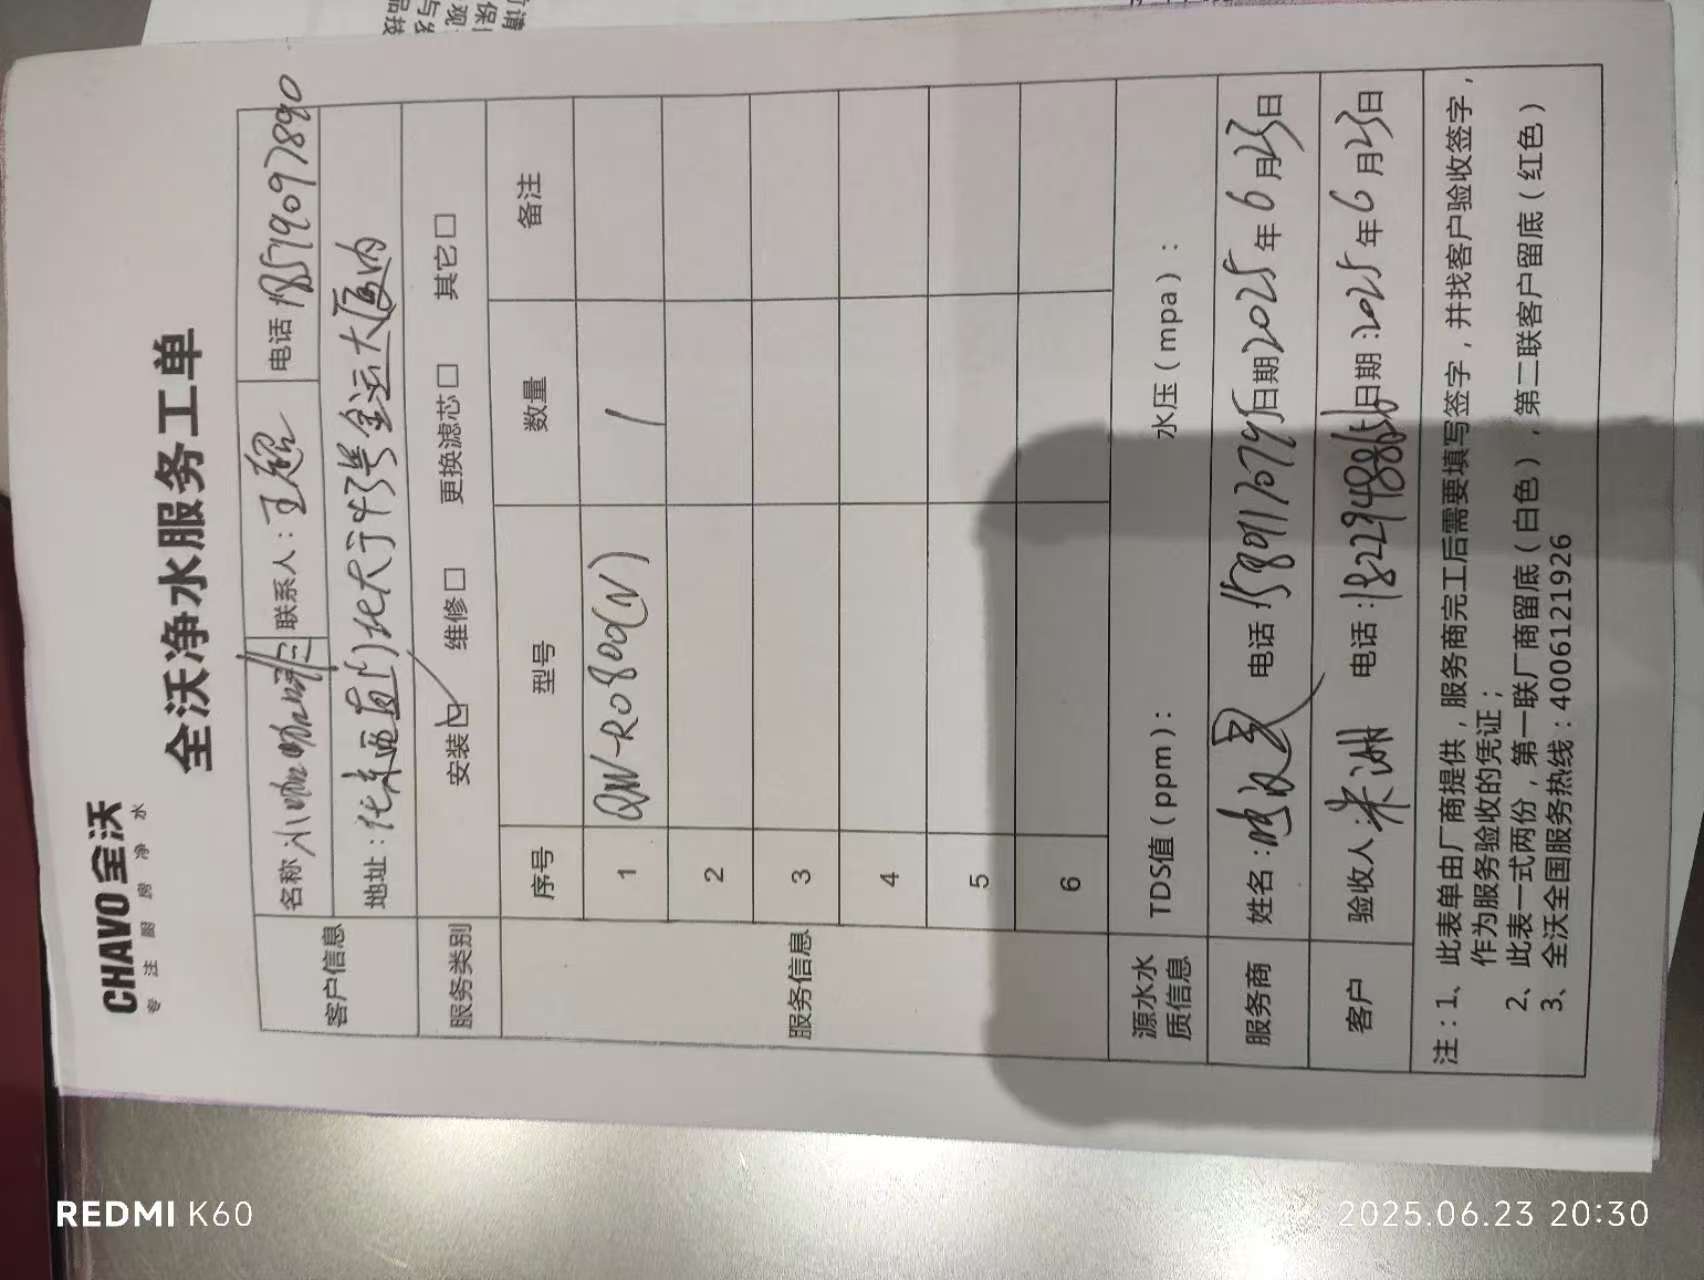 CHAVO 全沃
专注厨房净水
全沃净水服务工单
客户信息 名称 联系人：王超 电话 18519097890
地址： 金运大厦内
服务类别 安装☑ 维修□ 更换滤芯□ 其它□
服务信息 序号 型号 数量 备注
1 QW-RO800(N) 1
2
3
4
5
6
源水水质信息 TDS值（ppm）： 水压（mpa）：
服务商 姓名： 电话 15891170795 日期 2025年6月23日
客户 验收人 电话： 日期：2025年6月23日
注：1、此表单由厂商提供，服务商完工后需要填写签字，并找客户验收签字，
作为服务验收的凭证；
2、此表一式两份，第一联厂商留底（白色），第二联客户留底（红色）
3、全沃全国服务热线：4006121926
REDMI K60
2025.06.23 20:30